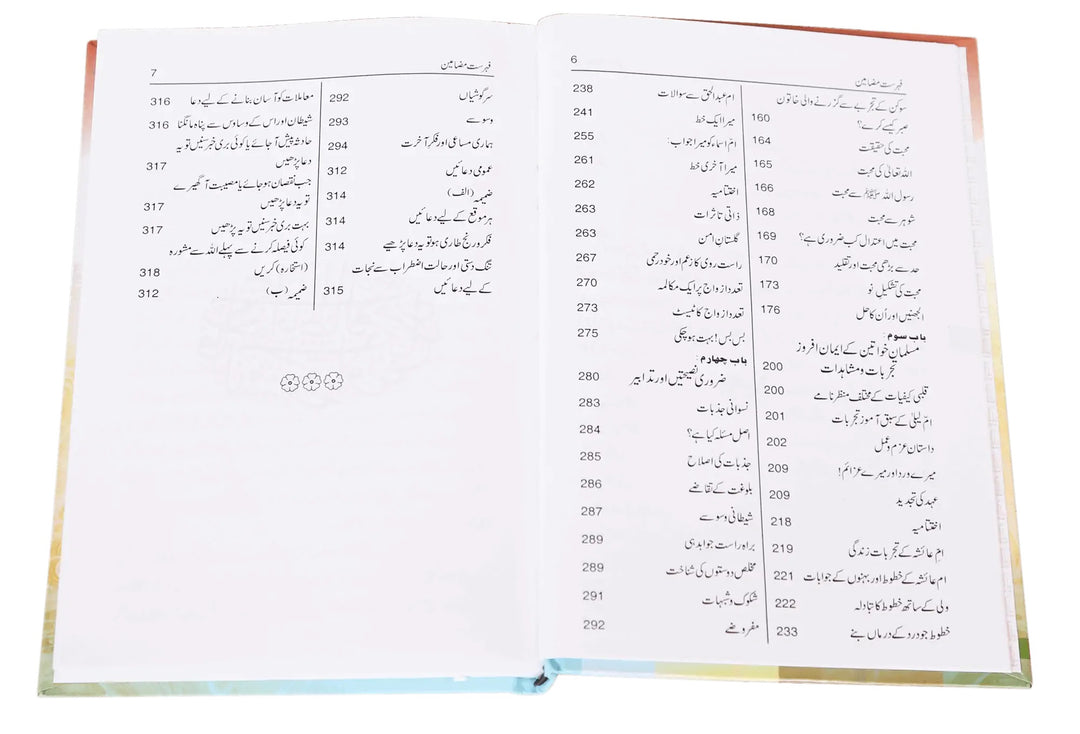 6
فہرست مضامین
سوکن کے تجربے سے گزرنے والی خاتون
صبر کیسے کرے؟ 160
محبت کی حقیقت 164
اللہ تعالیٰ کی محبت 165
رسول اللہ ﷺ سے محبت 166
شوہر سے محبت 168
محبت میں اعتدال کب ضروری ہے؟ 169
حد سے بڑھی محبت اور تقلید 170
محبت کی تشکیلِ نو 173
الجھنیں اور اُن کا حل 176
باب سوم:
مسلمان خواتین کے ایمان افروز
تجربات و مشاہدات 200
قلبی کیفیات کے مختلف منظرنامے 200
امّ لیلیٰ کے سبق آموز تجربات 201
داستان عزم و عمل 202
میرے ورد اور میرے عزائم! 209
عہد کی تجدید 209
اختتامیہ 218
ام عائشہ کے تجربات زندگی 219
ام عائشہ کے خطوط اور بہنوں کے جوابات 221
ولی کے ساتھ خطوط کا تبادلہ 222
خطوط جو درد کے درماں بنے 233
ام عبدالحق سے سوالات 238
میرا ایک خط 241
امّ اسماء کو میرا جواب: 255
میرا آخری خط 261
اختتامیہ 262
ذاتی تاثرات 263
گلستان امن 263
راست روی کا زعم اور خود رحمی 267
تعدد ازواج پر ایک مکالمہ 270
تعدد ازواج کا ٹیسٹ 273
بس بس! بہت ہوچکی 275
باب چہارم:
ضروری نصیحتیں اور تدابیر 280
نسوانی جذبات 283
اصل مسئلہ کیا ہے؟ 284
جذبات کی اصلاح 285
بلوغت کے تقاضے 286
شیطانی وسوسے 287
براہ راست جوابدہی 289
مخلص دوستوں کی شناخت 289
شکوک و شبہات 291
مفروضے 292
7
فہرست مضامین
سرگوشیاں 292
وسوسے 293
ہماری مساعی اور فکر آخرت 294
عمومی دعائیں 312
ضمیمہ (الف) 314
ہر موقع کے لیے دعائیں 314
فکر و رنج طاری ہو تو یہ دعا پڑھیے 314
تنگ دستی اور حالت اضطراب سے نجات
کے لیے دعائیں 315
معاملات کو آسان بنانے کے لیے دعا 316
شیطان اور اس کے وساوس سے پناہ مانگنا 316
حادثہ پیش آجائے یا کوئی بری خبر سنیں تو یہ
دعا پڑھیں 317
جب نقصان ہوجائے یا مصیبت آگھیرے
تو یہ دعا پڑھیں 317
بہت بری خبر سنیں تو یہ پڑھیں 317
کوئی فیصلہ کرنے سے پہلے اللہ سے مشورہ
(استخارہ) کریں 318
ضمیمہ (ب) 312